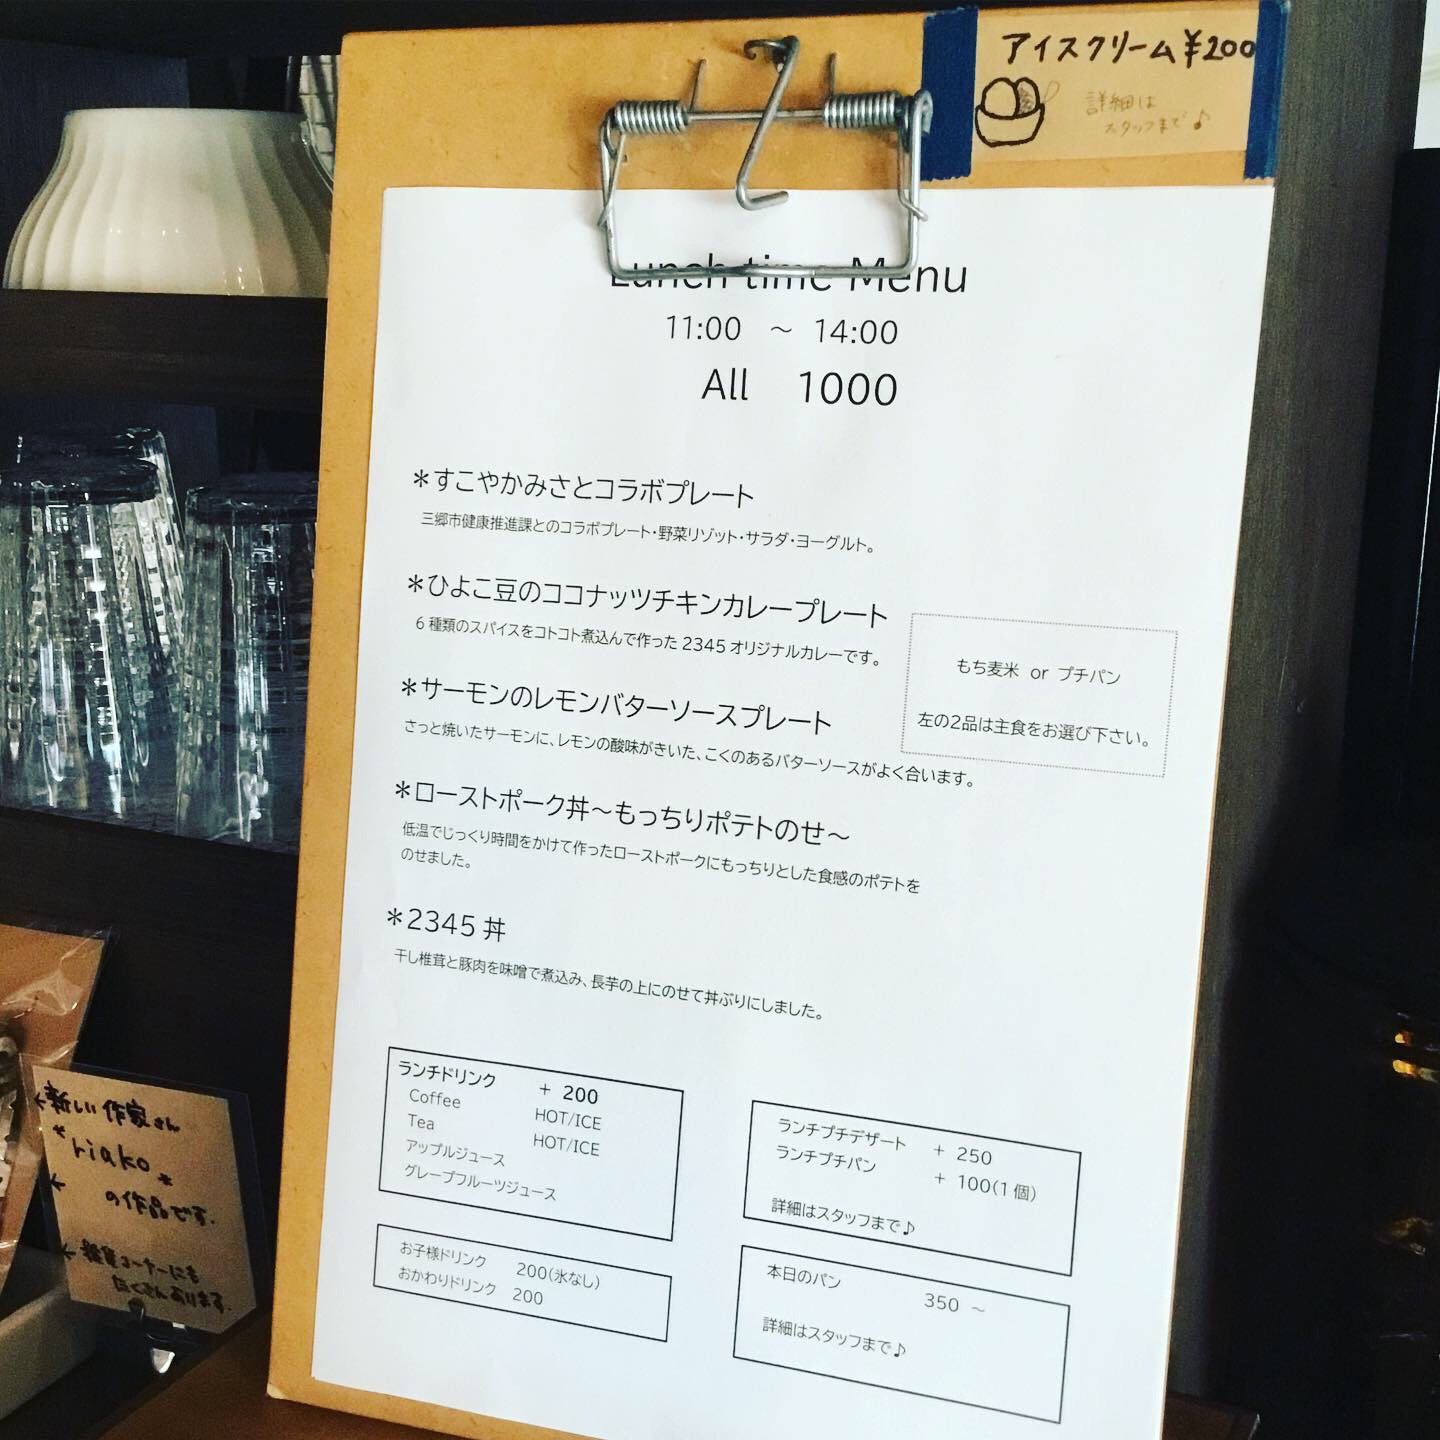 アイスクリーム¥200
詳細は
スタッフまで♪
Lunch time Menu
11:00 ～ 14:00
All 1000
＊すこやかみさとコラボプレート
三郷市健康推進課とのコラボプレート・野菜リゾット・サラダ・ヨーグルト。
＊ひよこ豆のココナッツチキンカレープレート
6種類のスパイスをコトコト煮込んで作った2345オリジナルカレーです。
＊サーモンのレモンバターソースプレート
さっと焼いたサーモンに、レモンの酸味がきいた、こくのあるバターソースがよく合います。
もち麦米 or プチパン
左の2品は主食をお選び下さい。
＊ローストポーク丼～もっちりポテトのせ～
低温でじっくり時間をかけて作ったローストポークにもっちりとした食感のポテトを
のせました。
＊2345丼
干し椎茸と豚肉を味噌で煮込み、長芋の上にのせて丼ぶりにしました。
ランチドリンク + 200
Coffee HOT/ICE
Tea HOT/ICE
アップルジュース
グレープフルーツジュース
お子様ドリンク 200(氷なし)
おかわりドリンク 200
ランチプチデザート + 250
ランチプチパン + 100(1個)
詳細はスタッフまで♪
本日のパン 350 ～
詳細はスタッフまで♪
新しい作家さん
*riako*
の作品です.
雑貨コーナーにも
たくさんあります.